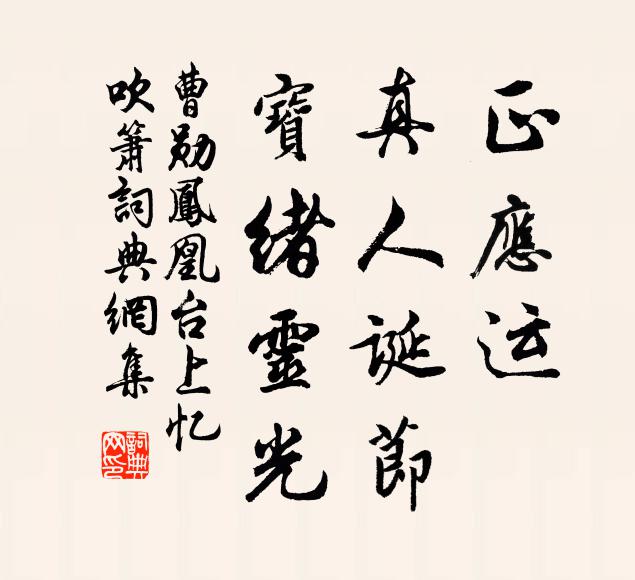 正應运
真人诞節
寶緒靈光
曹勋鳳凰台上忆
吹箫詞典網集
詞典网印